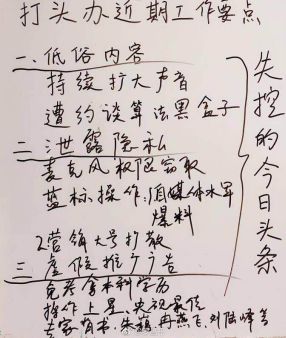 打头办近期工作要点
一、低俗内容
持续扩大声音
遭约谈算法黑盒子
二、泄露隐私
麦克风权限窃取
蓝标操作:自媒体水军
爆料
2营销大号打散
三、虚假推广告
免考拿本科学历
操作上星、央视最佳
专家背书:朱巍、冉燕飞、刘
失控的今日头条